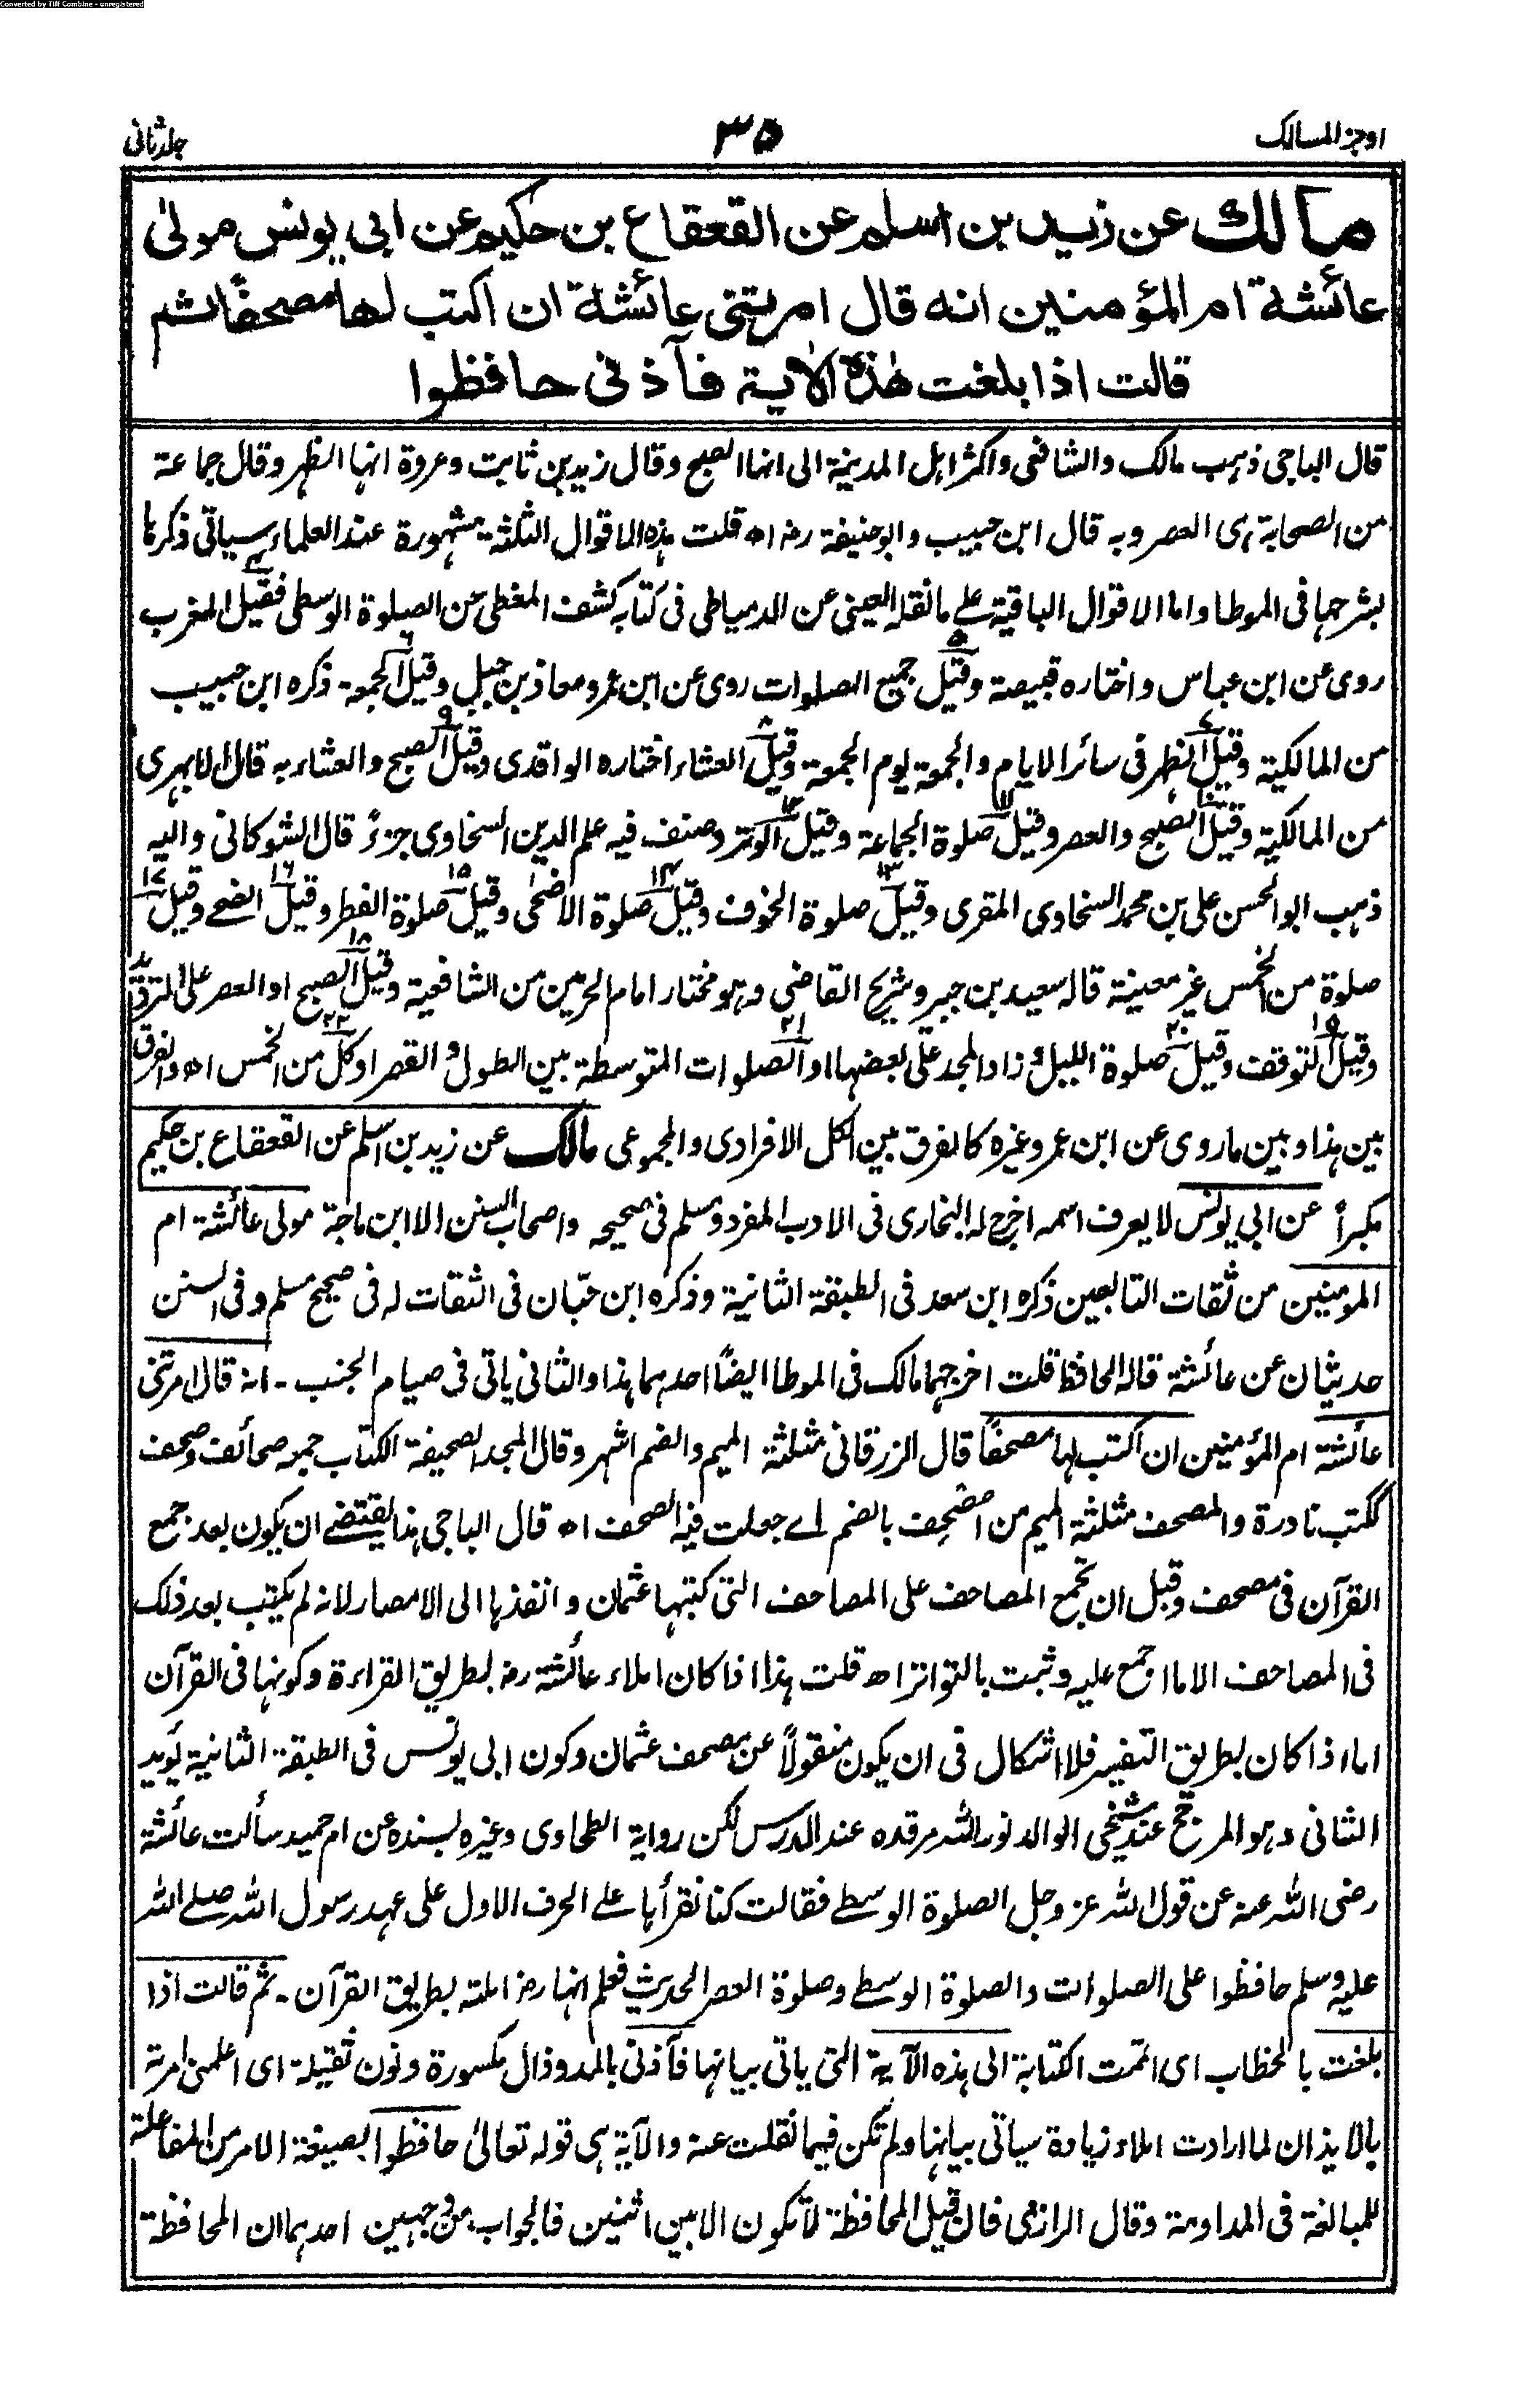 Converted by Tiff Combine - unregistered
اوجز المسالك
۳۵
جلد ثانی
مالك عن زيد بن اسلم عن القعقاع بن حكيم عن ابي يونس مولىٰ
عائشة ام المؤمنين انه قال امرتني عائشة ان اكتب لها مصحفًا ثم
قالت اذا بلغت هٰذه الاٰية فآذني حافظوا
قال الباجى ذهب مالك والشافعى واكثر اهل المدينة الى انها الصبح وقال زيد بن ثابت وعروة انها الظهر وقال جماعة
من الصحابة هى العصر وبه قال ابن حبيب وابو حنيفة رض اھ قلت هذه الاقوال الثلثة مشهورة عند العلماء سياتى ذكرها
بشرحها فى الموطا واما الاقوال الباقية على ما نقله العينى عن الدمياطى فى كتابه كشف المغطى عن الصلوة الوسطى فقيل المغرب
روى عن ابن عباس واختاره قبيصة وقيل جميع الصلوات روى عن ابن عمر ومعاذ بن جبل وقيل الجمعة ـ ذكره ابن حبيب
من المالكية وقيل الظهر فى سائر الايام والجمعة يوم الجمعة وقيل العشاء اختاره الواقدى وقيل الصبح والعشاء به قال الابهرى
من المالكية وقيل الصبح والعصر وقيل صلوة الجماعة وقيل الوتر وصنف فيه علم الدين السخاوى جزءً قال الشوكانى واليه
ذهب ابو الحسن على بن محمد السخاوى المقرى وقيل صلوة الخوف وقيل صلوة الاضحٰى وقيل صلوة الفطر وقيل الضحى وقيل
صلوة من الخمس غير معينة قاله سعيد بن جبير وشريح القاضى وهو مختار امام الحرمين من الشافعية وقيل الصبح او العصر على الترديد
وقيل التوقف وقيل صلوة الليل و زاد المجد على بعضها او الصلوات المتوسطة بين الطول و القصر او كل من الخمس اھ والفرق
بين هذا وبين ما روى عن ابن عمر وغيره كالفرق بين الكل الافرادى والمجموعى مالك عن زيد بن اسلم عن القعقاع بن حكيم
مكبراً عن ابي يونس لا يعرف اسمه اخرج له البخارى فى الادب المفرد ومسلم فى صحيحه واصحاب السنن الا ابن ماجة مولى عائشة ام
المومنين من ثقات التابعين ذكره ابن سعد فى الطبقة الثانية وذكره ابن حبّان فى الثقات له فى صحيح مسلم وفى السنن
حديثان عن عائشة قاله الحافظ قلت اخرجهما مالك فى الموطا ايضًا احدهما هذا والثانى ياتى فى صيام الجنب ـ انه قال امرتنى
عائشة ام المؤمنين ان اكتب لها مصحفاً قال الزرقانى مثلثة الميم والضم اشهر وقال المجد الصحيفة الكتاب جمعه صحائف وصحف
ككتب نادرة والمصحف مثلثة الميم من اصحف بالضم اے جعلت فيه الصحف اھ قال الباجى هذا يقتضے ان يكون بعد جمع
القرآن فى مصحف وقبل ان تجمع المصاحف على المصاحف التى كتبها عثمان وانفذها الى الامصار لانه لم يكتب بعد ذلك
فى المصاحف الا ما اجمع عليه وثبت بالتواتر اھ قلت هذا اذا كان املاء عائشة رض بطريق القراءة وكونها فى القرآن
اما اذا كان بطريق التفسير فلا اشكال فى ان يكون منقولاً عن مصحف عثمان وكون ابى يونس فى الطبقة الثانية يؤيد
الثانى وهو المرجح عند شيخى الوالد نور الله مرقده عند الدرس لكن رواية الطحاوى وغيره بسنده عن ام حميد سألت عائشة
رضى الله عنه عن قول الله عز وجل الصلوة الوسطے فقالت كنا نقرأها علے الحرف الاول على عهد رسول الله صلے الله
عليه وسلم حافظوا على الصلوات والصلوة الوسطے وصلوة العصر الحديث فعلم انها رض املته بطريق القرآن ـ ثم قالت اذا
بلغت بالخطاب اى اتممت الكتابة الى هذه الآية التى ياتى بيانها فآذنى بالمد وذال مكسورة ونون ثقيلة اى اعلمنى امرته
بالايذان لما ارادت املاء زيادة سياتى بيانها ولم تكن فيما نقلت عنه والآية هى قوله تعالىٰ حافظوا بصيغة الامر من المفاعلة
للمبالغة فى المداومة وقال الرازى فان قيل المحافظة لا تكون الا بين اثنين فالجواب من وجهين احدهما ان المحافظة